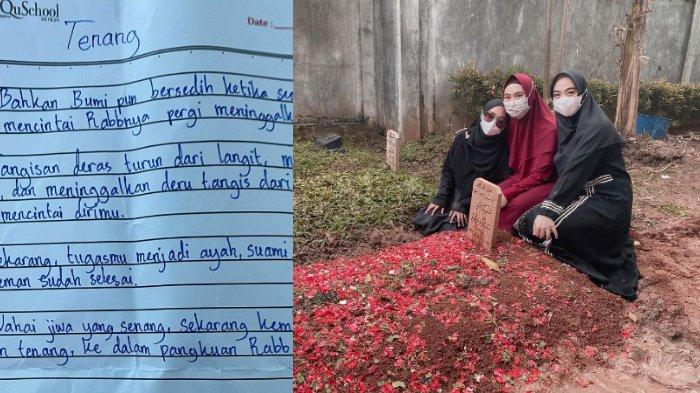 QuSchool
Date :
Tenang
Bahkan Bumi pun bersedih ketika
mencintai Rabbnya pergi meninggalk
angisan deras turun dari langit, m
, dan meninggalkan deru tangis dari
mencintai dirimu.
ekarang, tugasmu menjadi ayah, suami
eman sudah selesai.
Wahai jiwa yang senang, sekarang kem
n tenang, ke dalam pangkuan Rabb